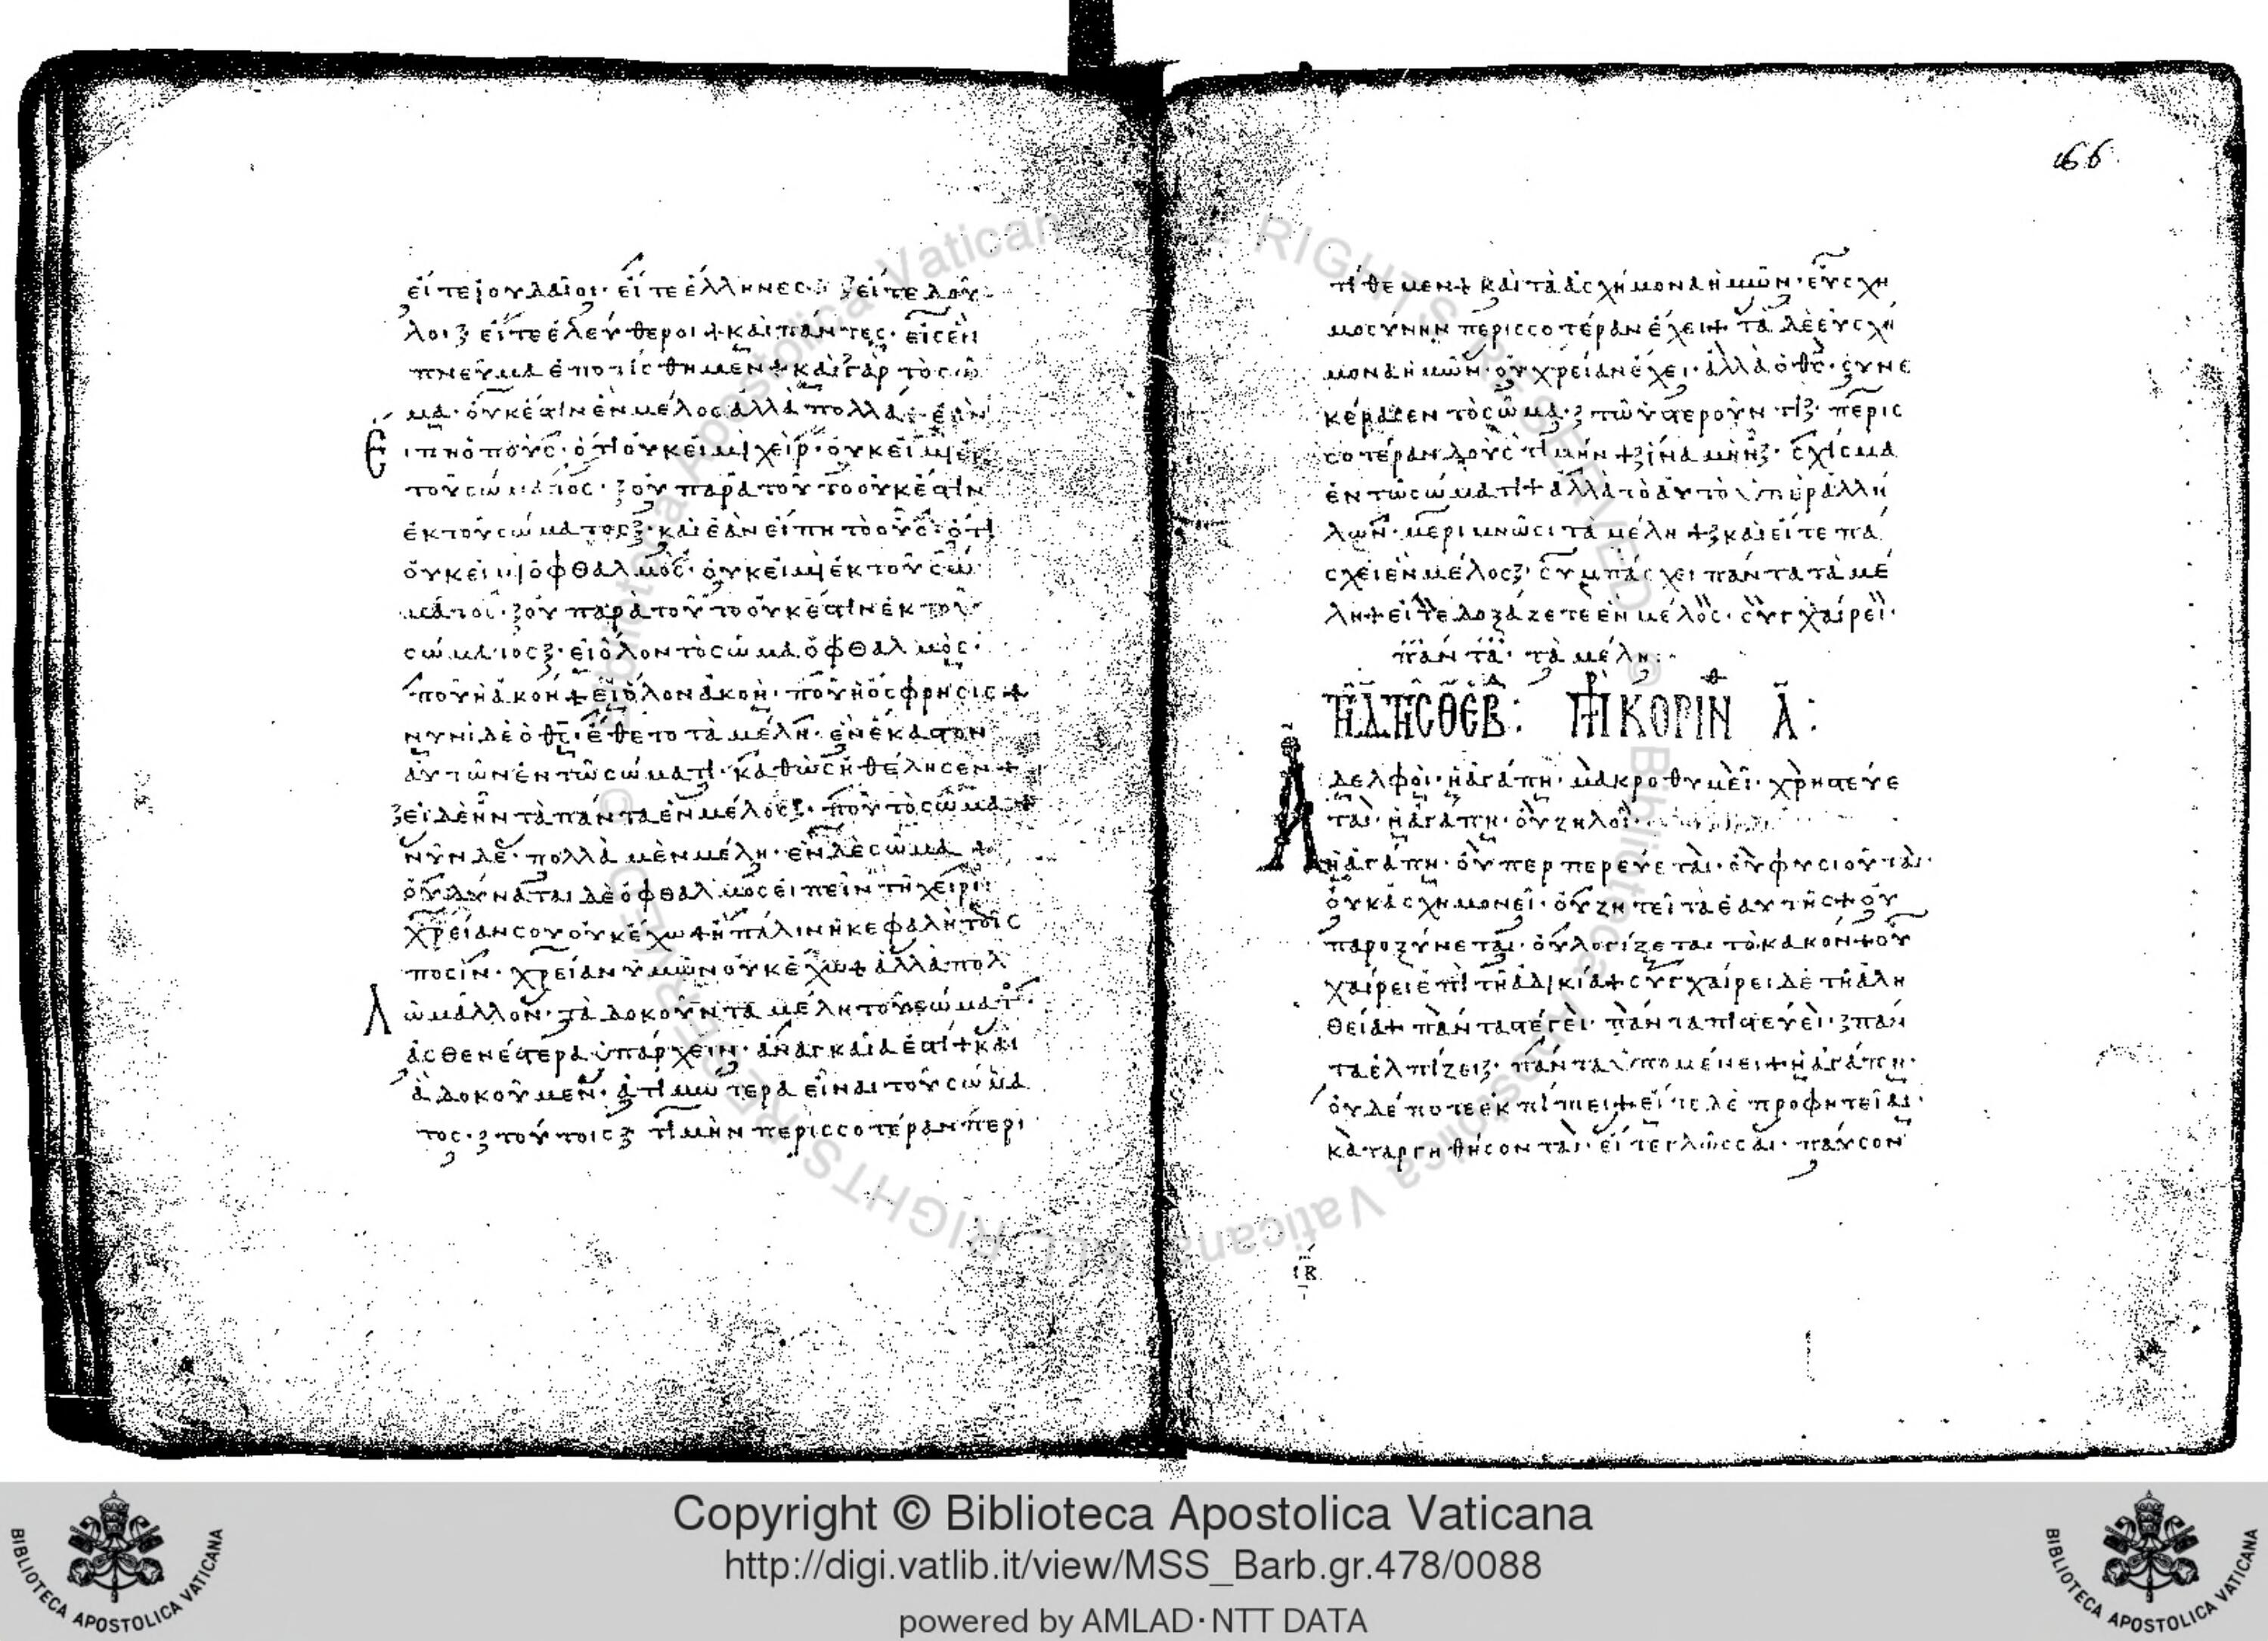 εἴτε ἰουδαῖοι· εἴτε ἕλληνες· εἴτε δοῦ
λοι εἴτε ἐλεύθεροι + καὶ πάντες· εἰς ἓν
πνεῦμα ἐποτίσθημεν + καὶ γὰρ τὸ σῶ
μα· οὐκ ἔστιν ἓν μέλος ἀλλὰ πολλά· ἐὰν
εἴπη ὁ πούς· ὅτι οὐκ εἰμὶ χείρ· οὐκ εἰμὶ ἐκ
τοῦ σώματος· οὐ παρὰ τοῦτο οὐκ ἔστιν
ἐκ τοῦ σώματος· καὶ ἐὰν εἴπη τὸ οὖς· ὅτι
οὐκ εἰμὶ ὀφθαλμός· οὐκ εἰμὶ ἐκ τοῦ σώ
ματος· οὐ παρὰ τοῦτο οὐκ ἔστιν ἐκ τοῦ
σώματος· εἰ ὅλον τὸ σῶμα ὀφθαλμὸς·
ποῦ ἡ ἀκοή + εἰ ὅλον ἀκοὴ· ποῦ ἡ ὄσφρησις +
νυνὶ δὲ ὁ θς· ἔθετο τὰ μέλη· ἓν ἕκαστον
αὐτῶν ἐν τῶ σώματι· καθὼς ἠθέλησεν +
εἰ δὲ ἦν τὰ πάντα ἓν μέλος· ποῦ τὸ σῶμα +
νῦν δὲ· πολλὰ μὲν μέλη· ἓν δὲ σῶμα +
οὐ δύναται δὲ ὀφθαλμὸς εἰπεῖν τῆ χειρί·
χρείαν σου οὐκ ἔχω + ἢ πάλιν ἡ κεφαλὴ τοῖς
ποσίν· χρείαν ὑμῶν οὐκ ἔχω + ἀλλὰ πολ
λῶ μᾶλλον· τὰ δοκοῦντα μέλη τοῦ σώματ
ἀσθενέστερα ὑπάρχειν· ἀναγκαῖα ἐστί + καὶ
ἃ δοκοῦμεν· ἀτιμώτερα εἶναι τοῦ σώμα
τος· τούτοις τιμὴν περισσοτέραν περι
66
τίθεμεν + καὶ τὰ ἀσχήμονα ἡμῶν· εὐσχη
μοσύνην περισσοτέραν ἔχει + τὰ δὲ εὐσχή
μονα ἡμῶν· οὐ χρείαν ἔχει· ἀλλὰ ὁ θς· συνε
κέρασεν τὸ σῶμα· τῶ ὑστεροῦντι· περισ
σοτέραν δοὺς τιμήν + ἵνα μὴ ἦ· σχίσμα
ἐν τῶ σώματι + ἀλλὰ τὸ αὐτὸ ὑπὲρ ἀλλή
λων· μεριμνῶσι τὰ μέλη + καὶ εἴτε πά
σχει ἓν μέλος· συμπάσχει πάντα τὰ μέ
λη + εἴτε δοξάζετε ἓν μέλος· συγχαίρει·
πάντα· τὰ μέλη:
ΚΟΡΙΝ Α:
Ἀδελφοὶ· ἡ ἀγάπη· μακροθυμεῖ· χρηστεύε
ται· ἡ ἀγάπη· οὐ ζηλοῖ·
ἡ ἀγάπη· οὐ περπερεύεται· οὐ φυσιοῦται·
οὐκ ἀσχημονεῖ· οὐ ζητεῖ τὰ ἑαυτῆς + οὐ
παροξύνεται· οὐ λογίζεται τὸ κακόν + οὐ
χαίρει ἐπὶ τῆ ἀδικία + συγχαίρει δὲ τῆ ἀλη
θεία + πάντα στέγει· πάντα πιστεύει· πάν
τα ἐλπίζει· πάντα ὑπομένει + ἡ ἀγάπη·
οὐδέποτε ἐκπίπτει + εἴτε δὲ προφητεῖαι·
καταργηθήσονται· εἴτε γλῶσσαι· παύσον
ιβ
Copyright © Biblioteca Apostolica Vaticana
http://digi.vatlib.it/view/MSS_Barb.gr.478/0088
powered by AMLAD·NTT DATA
BIBLIOTECA APOSTOLICA VATICANA
BIBLIOTECA APOSTOLICA VATICANA